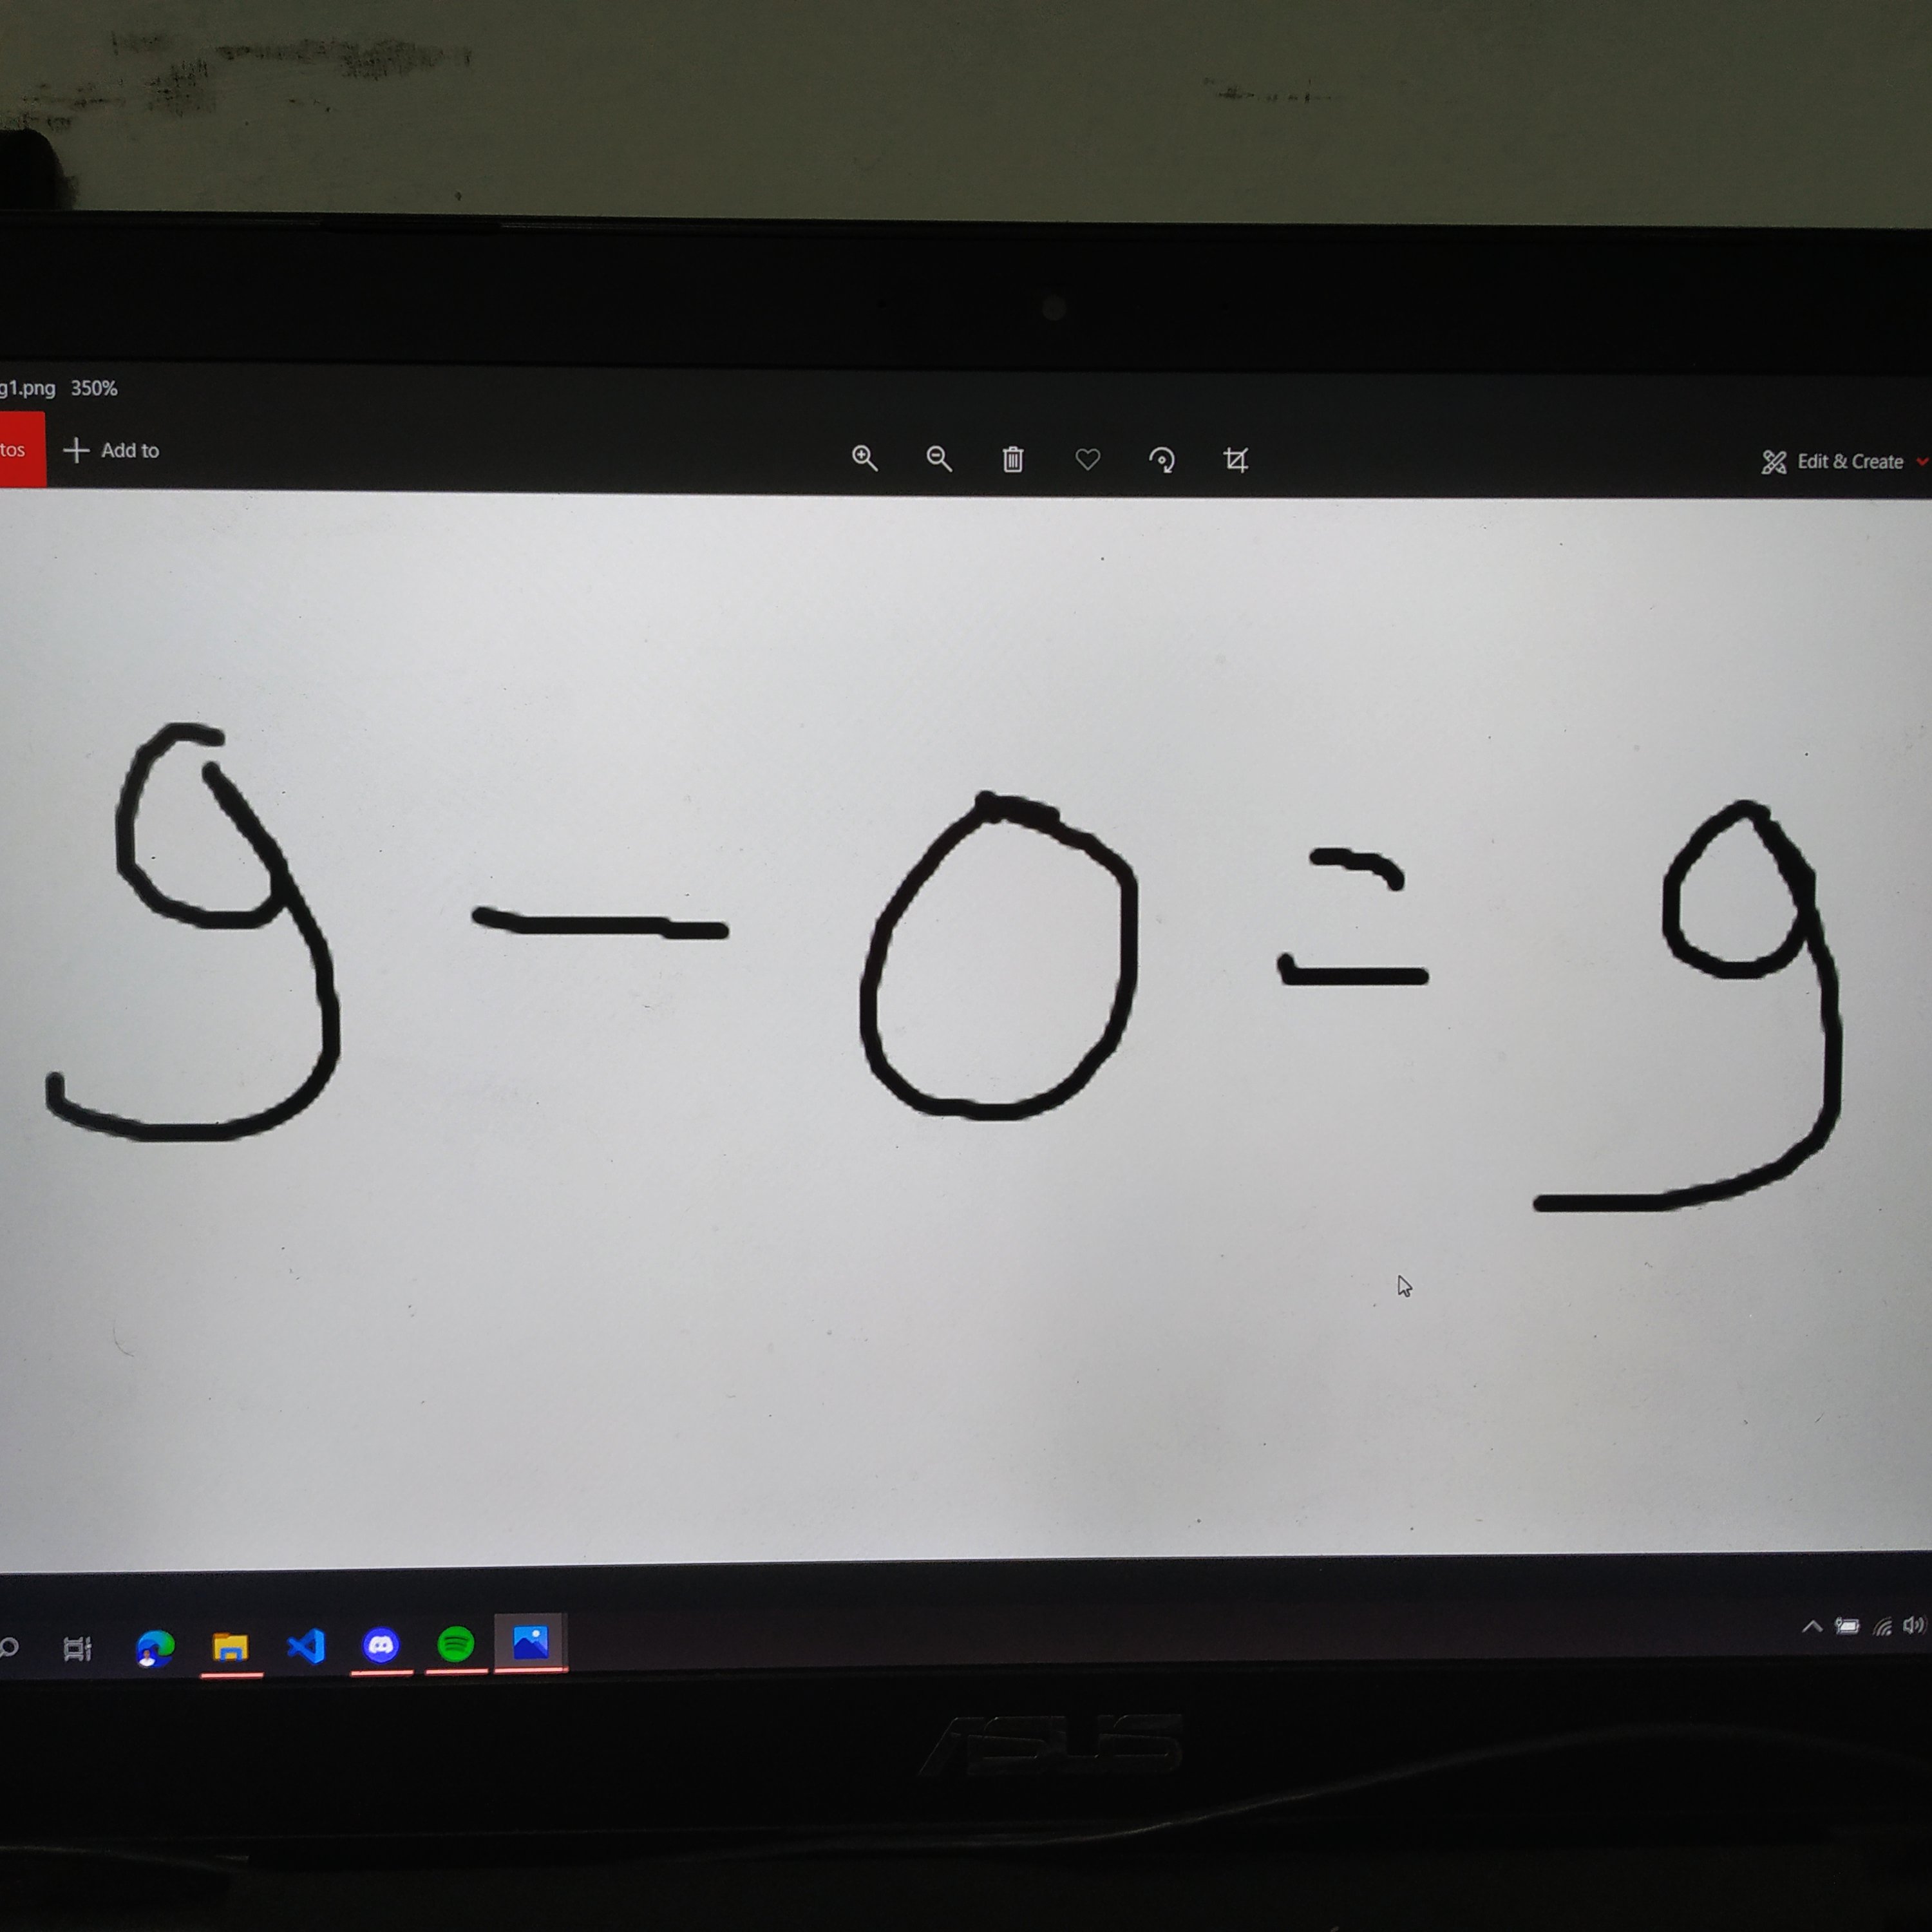 g1.png 350%
tos Add to Edit & Create
9 - 0 = 9
ASUS